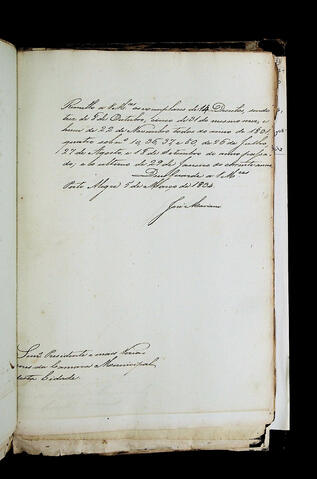 Remetto a V.Mces os exemplares de 14 Decretos, sendo
de 8 de Outubro, cinco de 31 do mesmo mez, e
hum de 22 de Novembro todos do anno de 1831
quatro sob nos 10, 36, 37 e 60, de 26 de Julho
27 de Agosto, e 18 de
do, e o ultimo de 29 de Janeiro do corrente anno
Deos Guarde a V.Mces
Porto Alegre 5 de Março de 1834
José Mariani
Snrs. Presidente e mais Verea-
res da Camara Municipal
desta Cidade